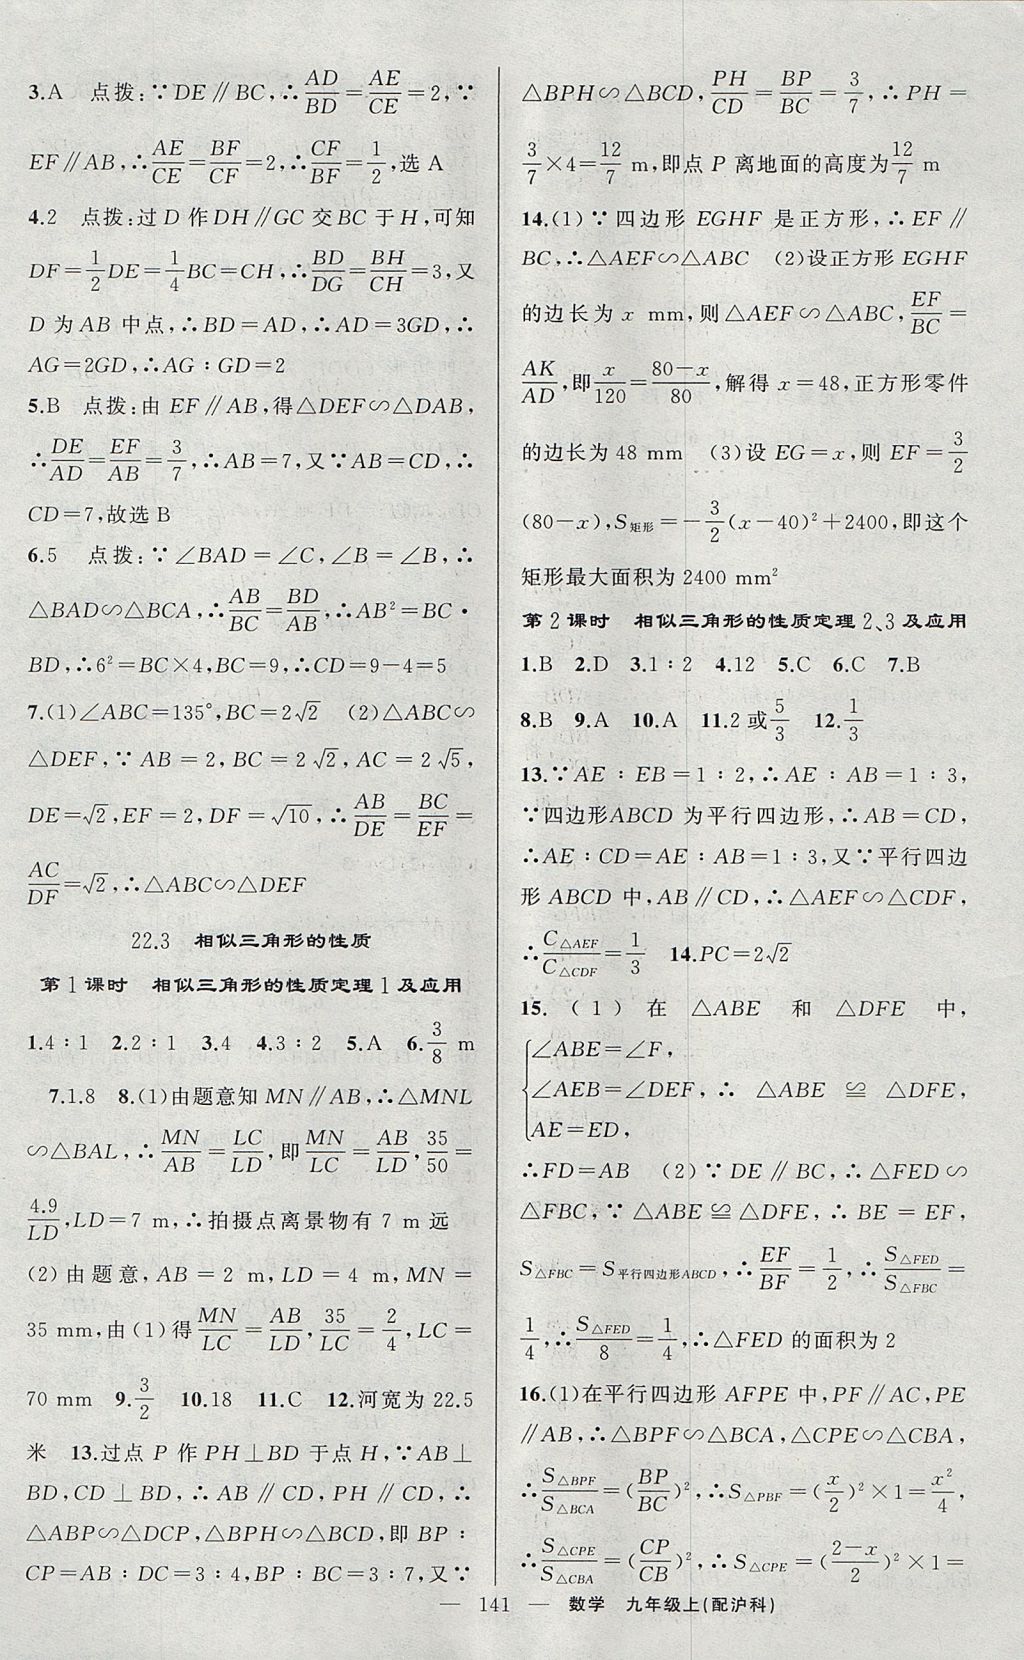 3.A 点拨:∵DE∥BC,∴AD/BD=AE/CE=2,∵
EF∥AB,∴AE/CE=BF/CF=2,∴CF/BF=1/2,选 A
4.2 点拨:过 D 作 DH∥GC 交 BC 于 H,可知
DF=1/2DE=1/4BC=CH,∴BD/DG=BH/CH=3,又
D 为 AB 中点,∴BD=AD,∴AD=3GD,∴
AG=2GD,∴AG∶GD=2
5.B 点拨:由 EF∥AB,得△DEF∽△DAB,
∴DE/AD=EF/AB=3/7,∴AB=7,又∵AB=CD,∴
CD=7,故选 B
6.5 点拨:∵∠BAD=∠C,∠B=∠B,∴
△BAD∽△BCA,∴AB/BC=BD/AB,∴AB²=BC·
BD,∴6²=BC×4,BC=9,∴CD=9-4=5
7.(1)∠ABC=135°,BC=2√2 (2)△ABC∽
△DEF,∵AB=2,BC=2√2,AC=2√5,
DE=√2,EF=2,DF=√10,∴AB/DE=BC/EF=
AC/DF=√2,∴△ABC∽△DEF
22.3 相似三角形的性质
第1课时 相似三角形的性质定理1及应用
1.4∶1 2.2∶1 3.4 4.3∶2 5.A 6.3/8 m
7.1.8 8.(1)由题意知 MN∥AB,∴△MNL
∽△BAL,∴MN/AB=LC/LD,即MN/LC=AB/LD,35/50=
4.9/LD,LD=7 m,∴拍摄点离景物有 7 m 远
(2)由题意,AB=2 m,LD=4 m,MN=
35 mm,由(1)得MN/LC=AB/LD,35/LC=2/4,LC=
70 mm 9.3/2 10.18 11.C 12.河宽为 22.5
米 13.过点 P 作 PH⊥BD 于点 H,∵AB⊥
BD,CD⊥BD,∴AB∥CD,PH∥CD,∴
△ABP∽△DCP,△BPH∽△BCD,即 BP∶
CP=AB∶DC=3∶4,BP∶BC=3∶7,又∵
△BPH∽△BCD,PH/CD=BP/BC=3/7,∴PH=
3/7×4=12/7 m,即点 P 离地面的高度为12/7 m
14.(1)∵四边形 EGHF 是正方形,∴EF∥
BC,∴△AEF∽△ABC (2)设正方形 EGHF
的边长为 x mm,则△AEF∽△ABC,EF/BC=
AK/AD,即x/120=(80-x)/80,解得 x=48,正方形零件
的边长为 48 mm (3)设 EG=x,则 EF=3/2
(80-x),S矩形=-3/2(x-40)²+2400,即这个
矩形最大面积为 2400 mm²
第2课时 相似三角形的性质定理2、3及应用
1.B 2.D 3.1∶2 4.12 5.C 6.C 7.B
8.B 9.A 10.A 11.2 或5/3 12.1/3
13.∵AE∶EB=1∶2,∴AE∶AB=1∶3,
∵四边形ABCD 为平行四边形,∴AB=CD,
∴AE∶CD=AE∶AB=1∶3,又∵平行四边
形 ABCD 中,AB∥CD,∴△AEF∽△CDF,
∴C△AEF/C△CDF=1/3 14.PC=2√2
15.(1)在 △ABE 和 △DFE 中,
∠ABE=∠F,
∠AEB=∠DEF,∴ △ABE ≌ △DFE,
AE=ED,
∴FD=AB (2)∵DE∥BC,∴△FED∽
△FBC,∵△ABE≌△DFE,∴BE=EF,
S△FBC=S平行四边形ABCD,∴EF/BF=1/2,∴S△FED/S△FBC=
1/4,∴S△FED/8=1/4,∴△FED 的面积为 2
16.(1)在平行四边形 AFPE 中,PF∥AC,PE
∥AB,∴△BPF∽△BCA,△CPE∽△CBA,
∴S△BPF/S△BCA=(BP/BC)²,∴S△PBF=(x/2)²×1=x²/4,
∴S△CPE/S△CBA=(CP/CB)²,∴S△CPE=((2-x)/2)²×1=
— 141 — 数学 九年级上(配沪科)